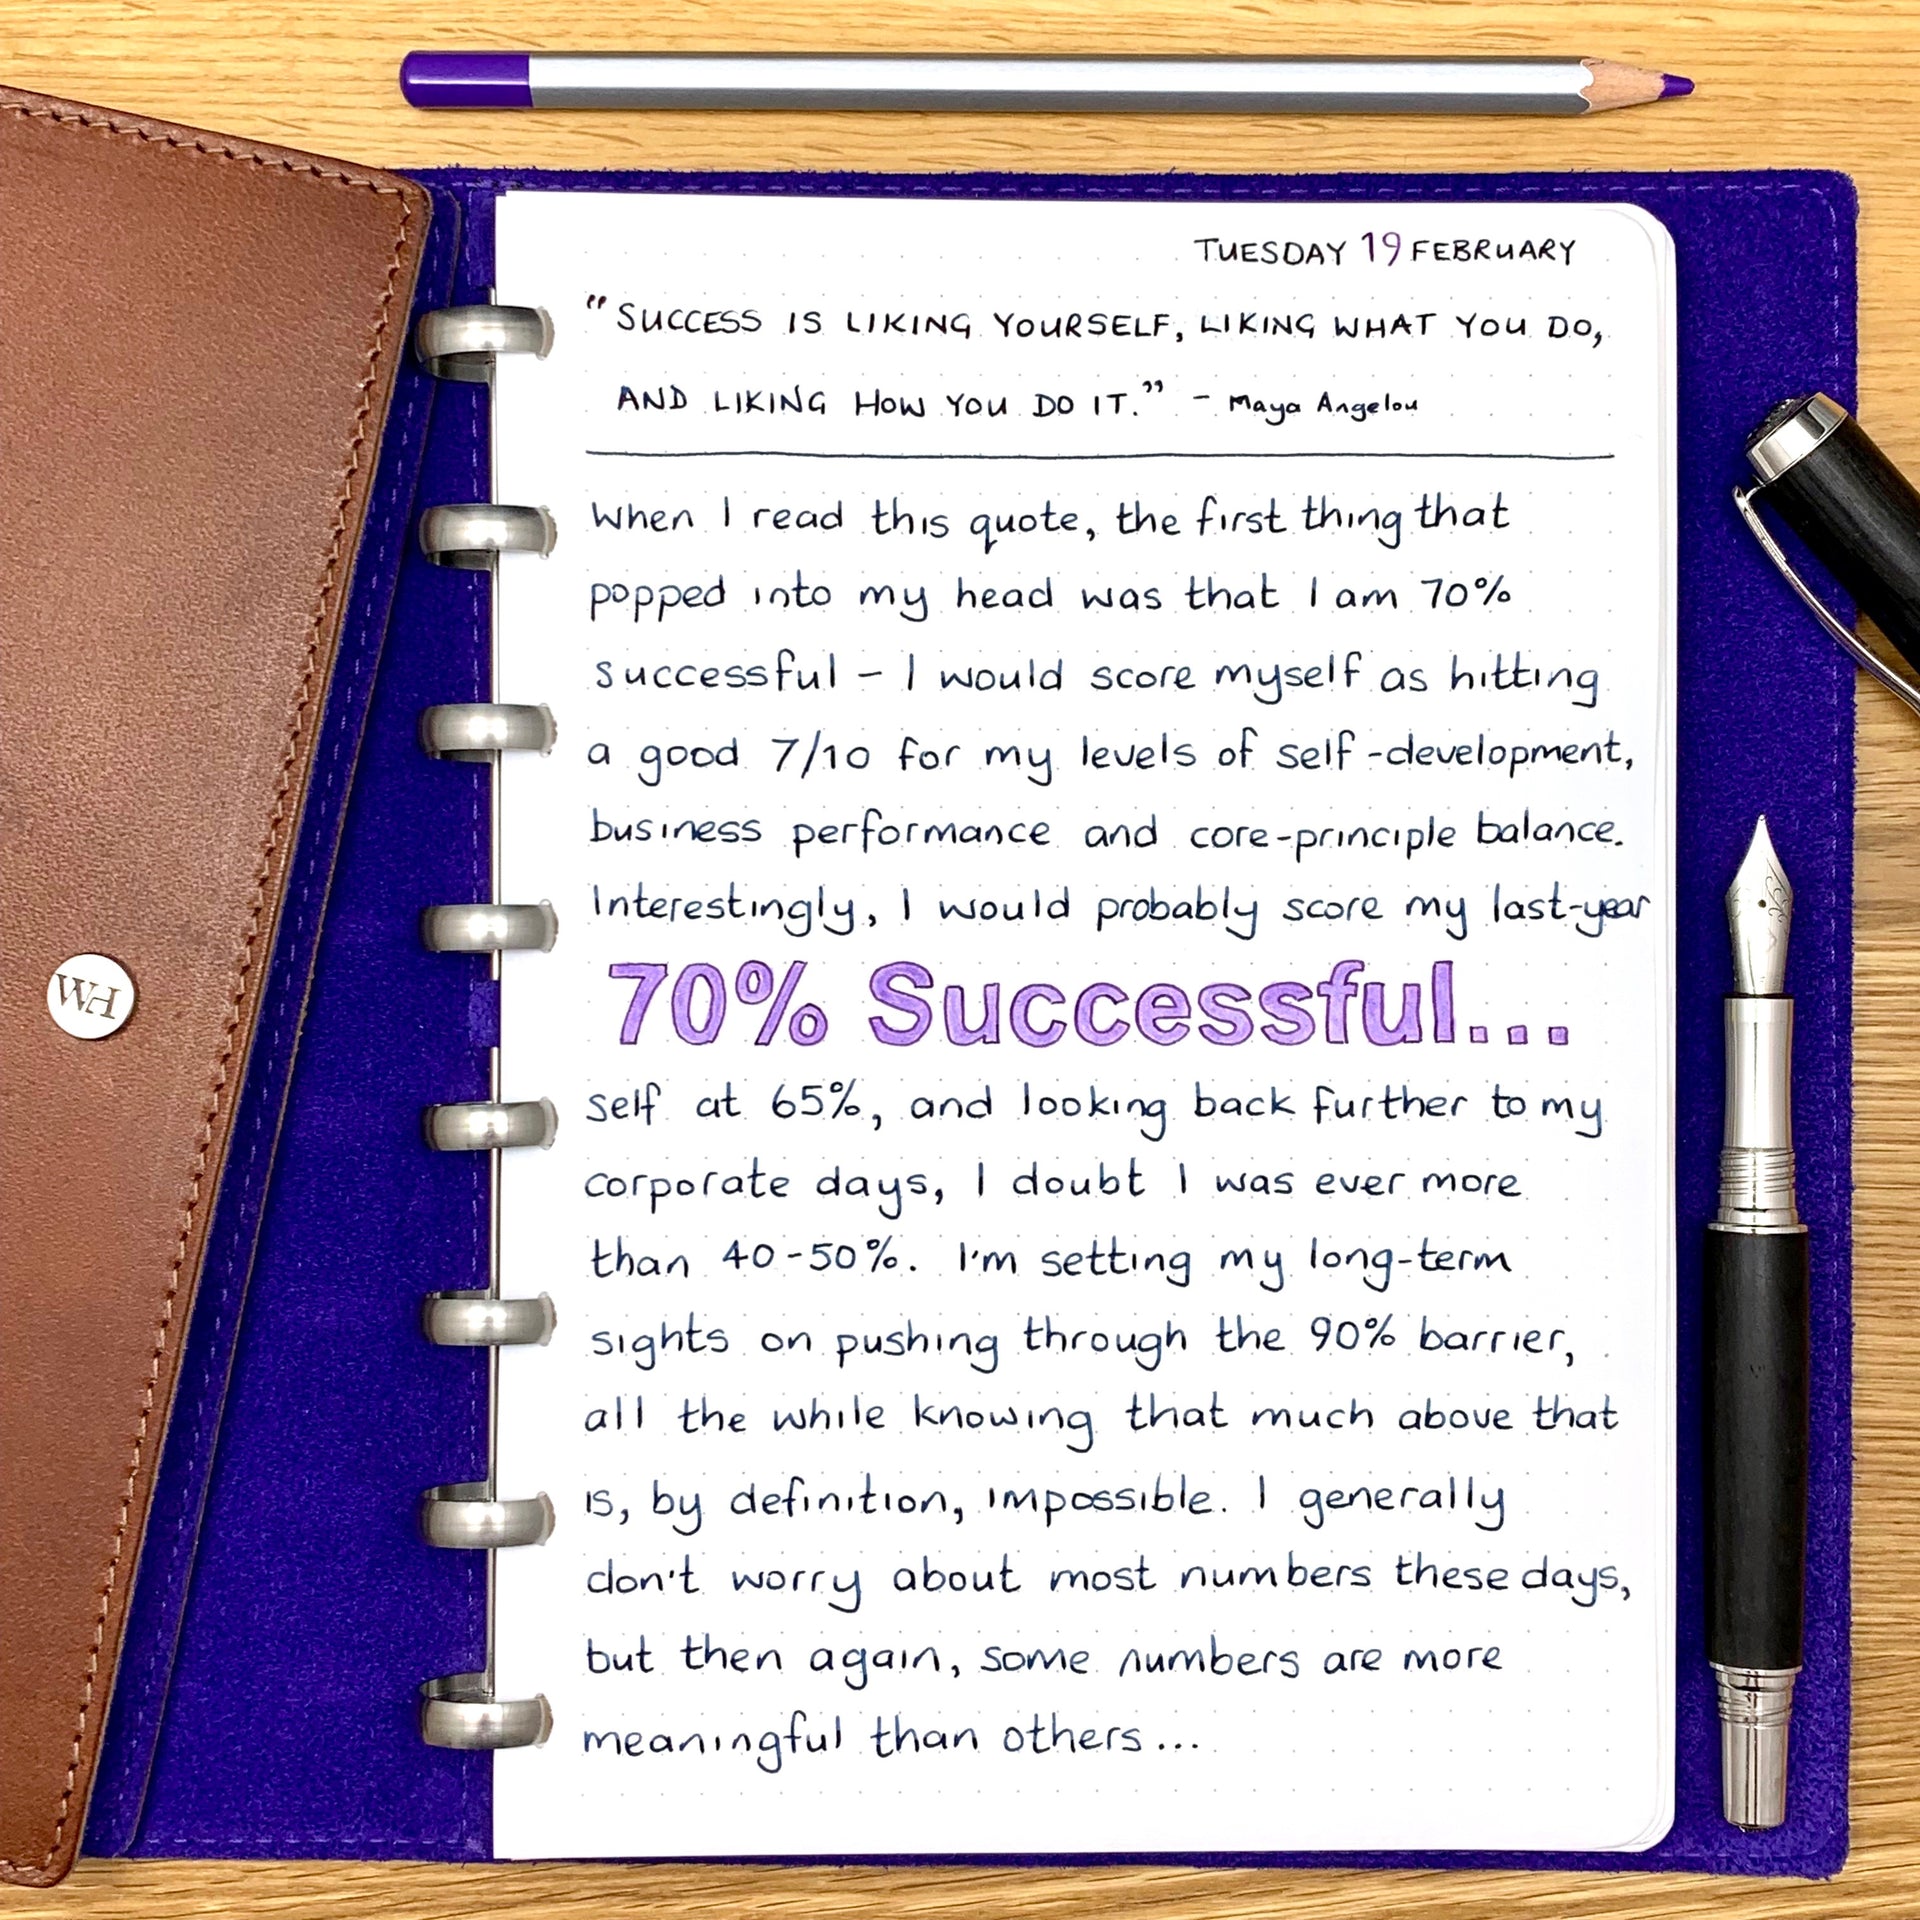 TUESDAY 19 FEBRUARY
"SUCCESS IS LIKING YOURSELF, LIKING WHAT YOU DO,
AND LIKING HOW YOU DO IT." - Maya Angelou
When I read this quote, the first thing that
popped into my head was that I am 70%
successful - I would score myself as hitting
a good 7/10 for my levels of self-development,
business performance and core-principle balance.
Interestingly, I would probably score my last-year
70% Successful...
self at 65%, and looking back further to my
corporate days, I doubt I was ever more
than 40-50%. I'm setting my long-term
sights on pushing through the 90% barrier,
all the while knowing that much above that
is, by definition, impossible. I generally
don't worry about most numbers these days,
but then again, some numbers are more
meaningful than others...
WH